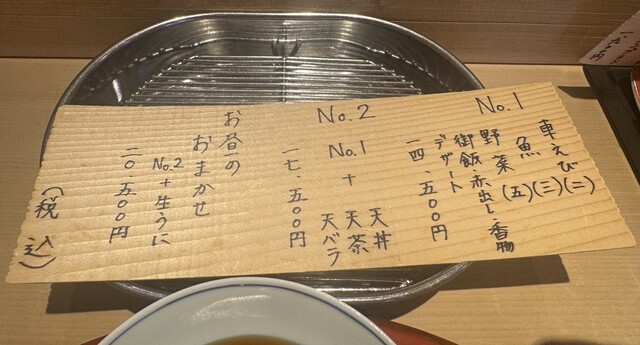 No.1
車えび(二)
魚(三)
野菜(五)
御飯・赤出し・香物
デザート
一四、五〇〇円
No.2
No.1 + 天丼
天茶
天バラ
一七、五〇〇円
お昼の
おまかせ
No.2 + 生うに
二〇、五〇〇円
(税込)